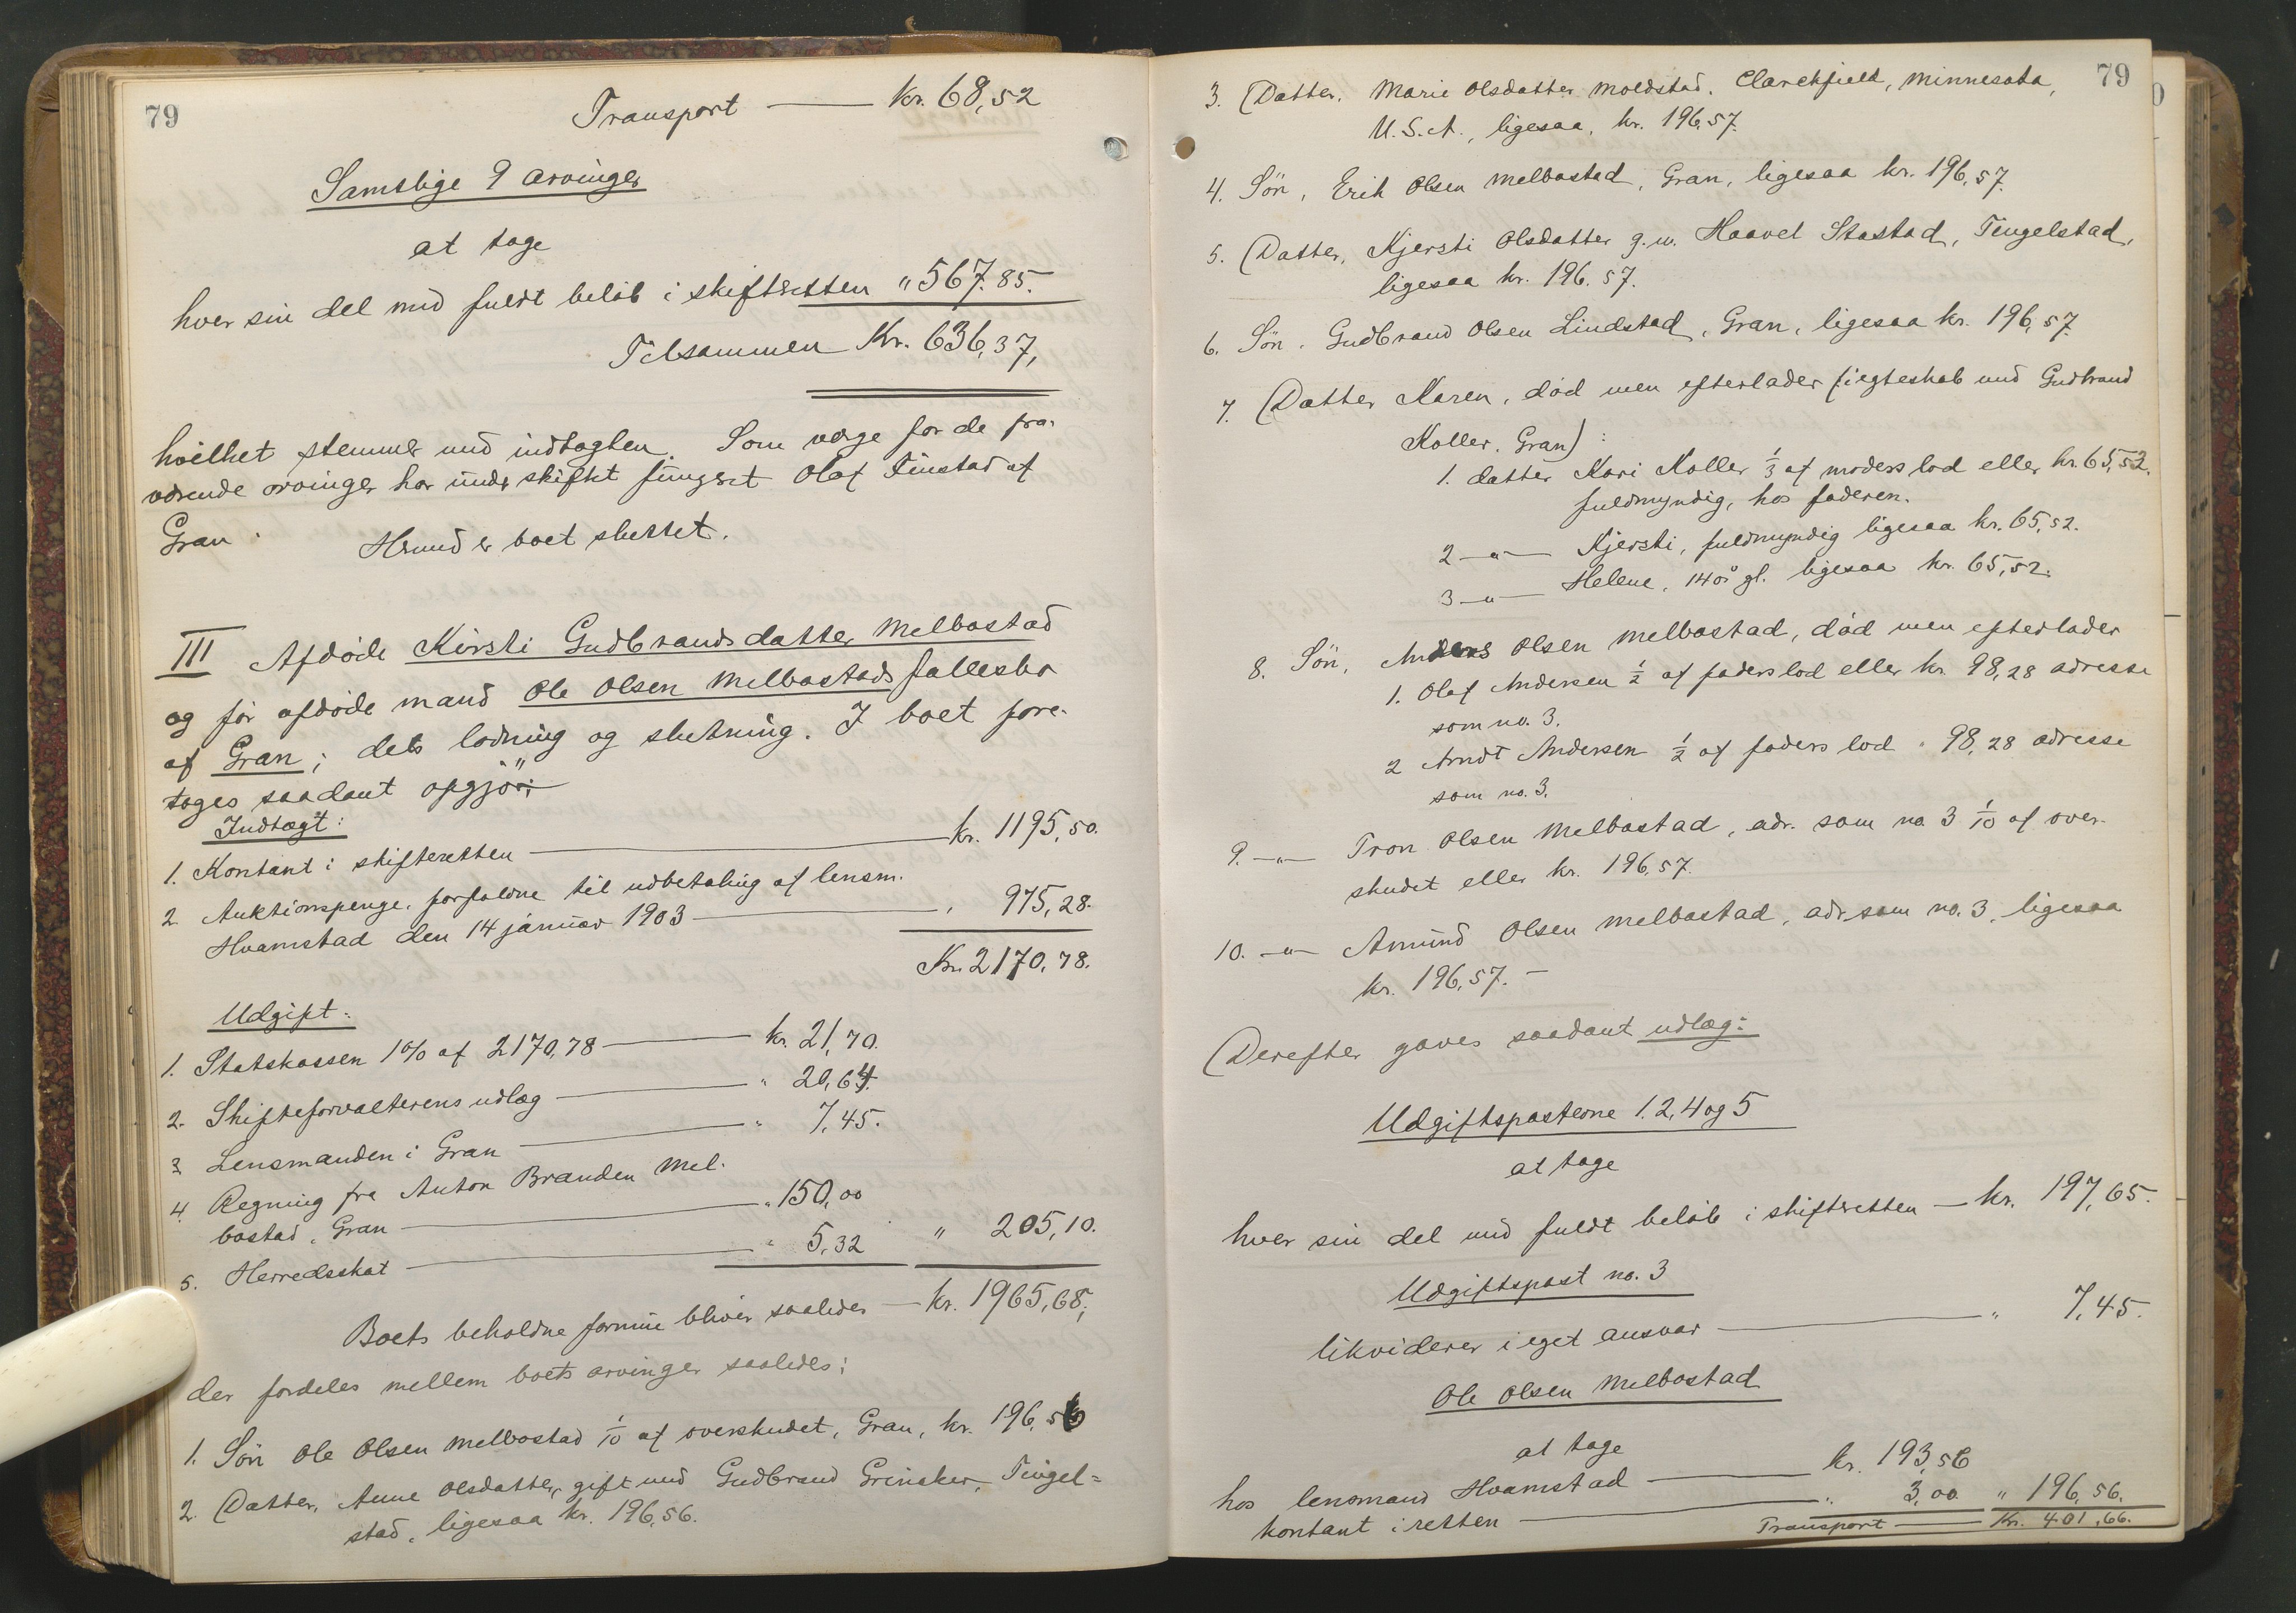 79
Transport — kr. 68,52
Samtlige 9 arvinger
at tage
hver sin del med fuldt beløb i skifteretten " 567.85.
Tilsammen Kr. 636,37,
hvilket stemmer med indtægten. Som værge for de fra-
værende arvinger har under skiftet fungeret Olaf Tinstad af
Gran.
Hermed er boet sluttet.
III Afdøde Kirsti Gudbrandsdatter Melbostad
og før afdøde mand Ole Olsen Melbostads fællesbo
af Gran; dets lodning og slutning. I boet fore-
toges saadant opgjør:
Indtægt:
1. Kontant i skifteretten — kr. 1195,50.
2. Auktionspenge, forfaldne til udbetaling af lensm.
Hvamstad den 14 januar 1903 — " 975,28.
Kr. 2170,78.
Udgift:
1. Statskassen 1% af 2170,78 — kr. 21,70.
2. Skifteforvalterens udlæg — " 20,64.
3 Lensmanden i Gran — " 7,45.
4. Regning fra Anton Branden Mel-
bostad, Gran — " 150,00
5. Herredsskat — " 5,32 " 205,10.
Boets beholdne formue bliver saaledes — kr. 1965,68;
der fordeles mellem boets arvinger saaledes:
1. Søn Ole Olsen Melbostad 1/10 af overskudet, Gran, kr. 196,56
2. Datter, Anne Olsdatter, gift med Gudbrand Grinaker, Tingel=
stad, ligesaa kr. 196,56.
79
3. Datter, Marie Olsdatter Moldstad, Clarekfield, Minnesota,
U.S.A., ligesaa, kr. 196,57.
4. Søn, Erik Olsen Melbostad, Gran, ligesaa kr. 196,57.
5. Datter, Kjersti Olsdatter g.m. Haavel Stastad, Tingelstad,
ligesaa kr. 196.57.
6. Søn. Gudbrand Olsen Lindstad, Gran, ligesaa kr. 196,57
7. Datter Karen, død men efterlader (i egteskab med Gudbrand
Koller, Gran):
1. datter Kari Koller 1/3 af moders lod eller kr. 65,52.
fuldmyndig, hos faderen.
2 —"— Kjersti, fuldmyndig ligesaa kr. 65,52.
3 —"— Helene, 14 år gl. ligesaa kr. 65,52.
8. Søn, Anders Olsen Melbostad, død men efterlader
1. Olaf Andersen 1/2 af faders lod eller kr. 98,28 adresse
som no. 3.
2 Arndt Andersen 1/2 af faders lod " 98,28 adresse
som no. 3.
9. —"— Tron Olsen Melbostad, adr. som no. 3 1/10 af over-
skudet eller kr. 196,57.
10. —"— Amund Olsen Melbostad, adr. som no. 3, ligesaa
kr. 196,57. —
Derefter gaves saadant udlæg:
Udgiftsposterne 1. 2, 4 og 5
at tage
hver sin del med fuldt beløb i skifteretten — kr. 197,65.
Udgiftspost no. 3
likviderer i eget ansvar — " 7,45.
Ole Olsen Melbostad
at tage
hos lensmand Hvamstad — kr. 193,56
kontant i retten — " 3,00 " 196,56.
Transport — Kr. 401,66.